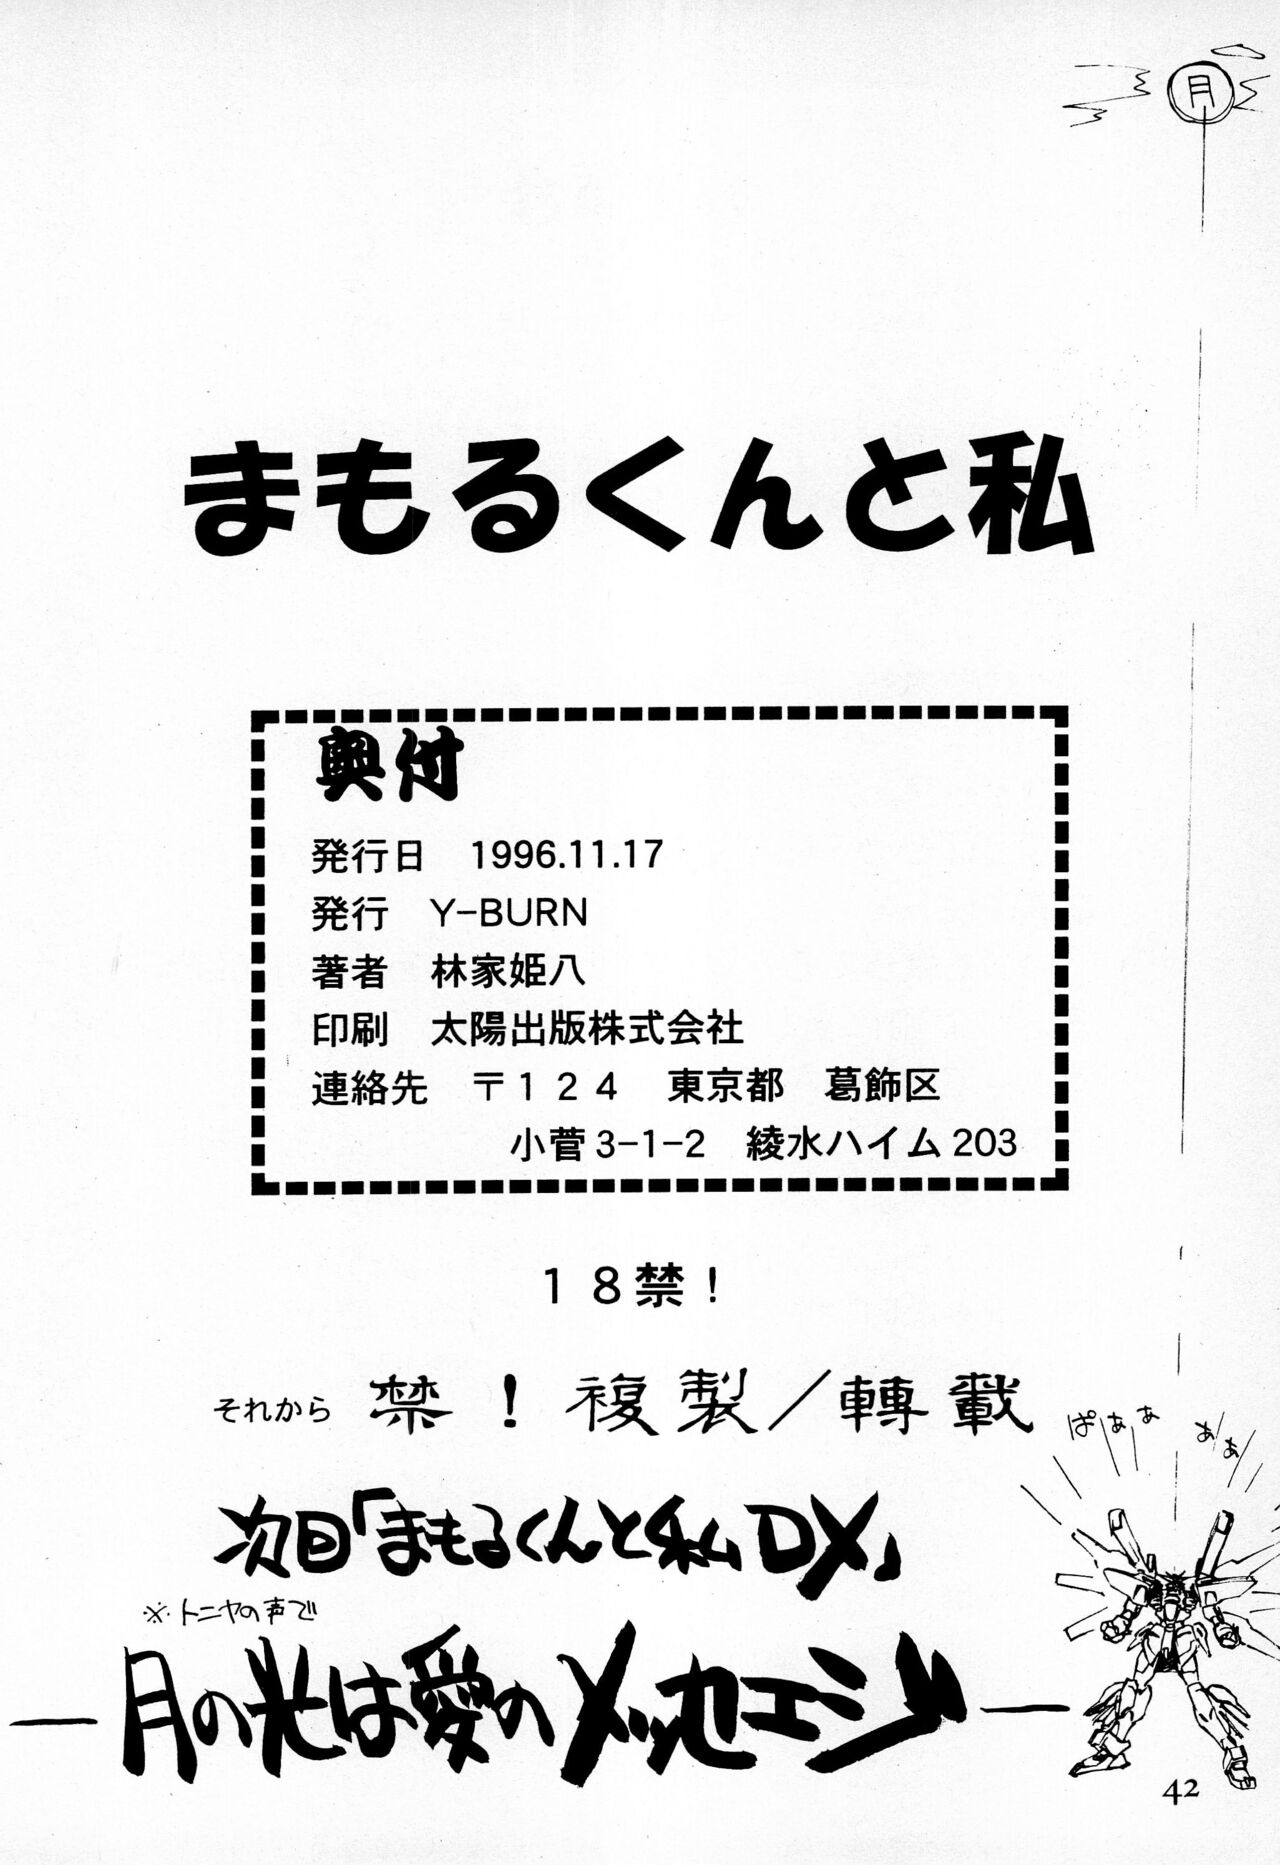 月
まもるくんと私
奥付
発行日　1996.11.17
発行　Y-BURN
著者　林家姫八
印刷　太陽出版株式会社
連絡先　〒１２４　東京都　葛飾区
小菅3-1-2　綾水ハイム203
１８禁！
それから　禁！複製／轉載
ぱぁぁ　ぁぁ
次回「まもるくんと私DX」
※トニヤの声で
—月の光は愛のメッセエジ—
42